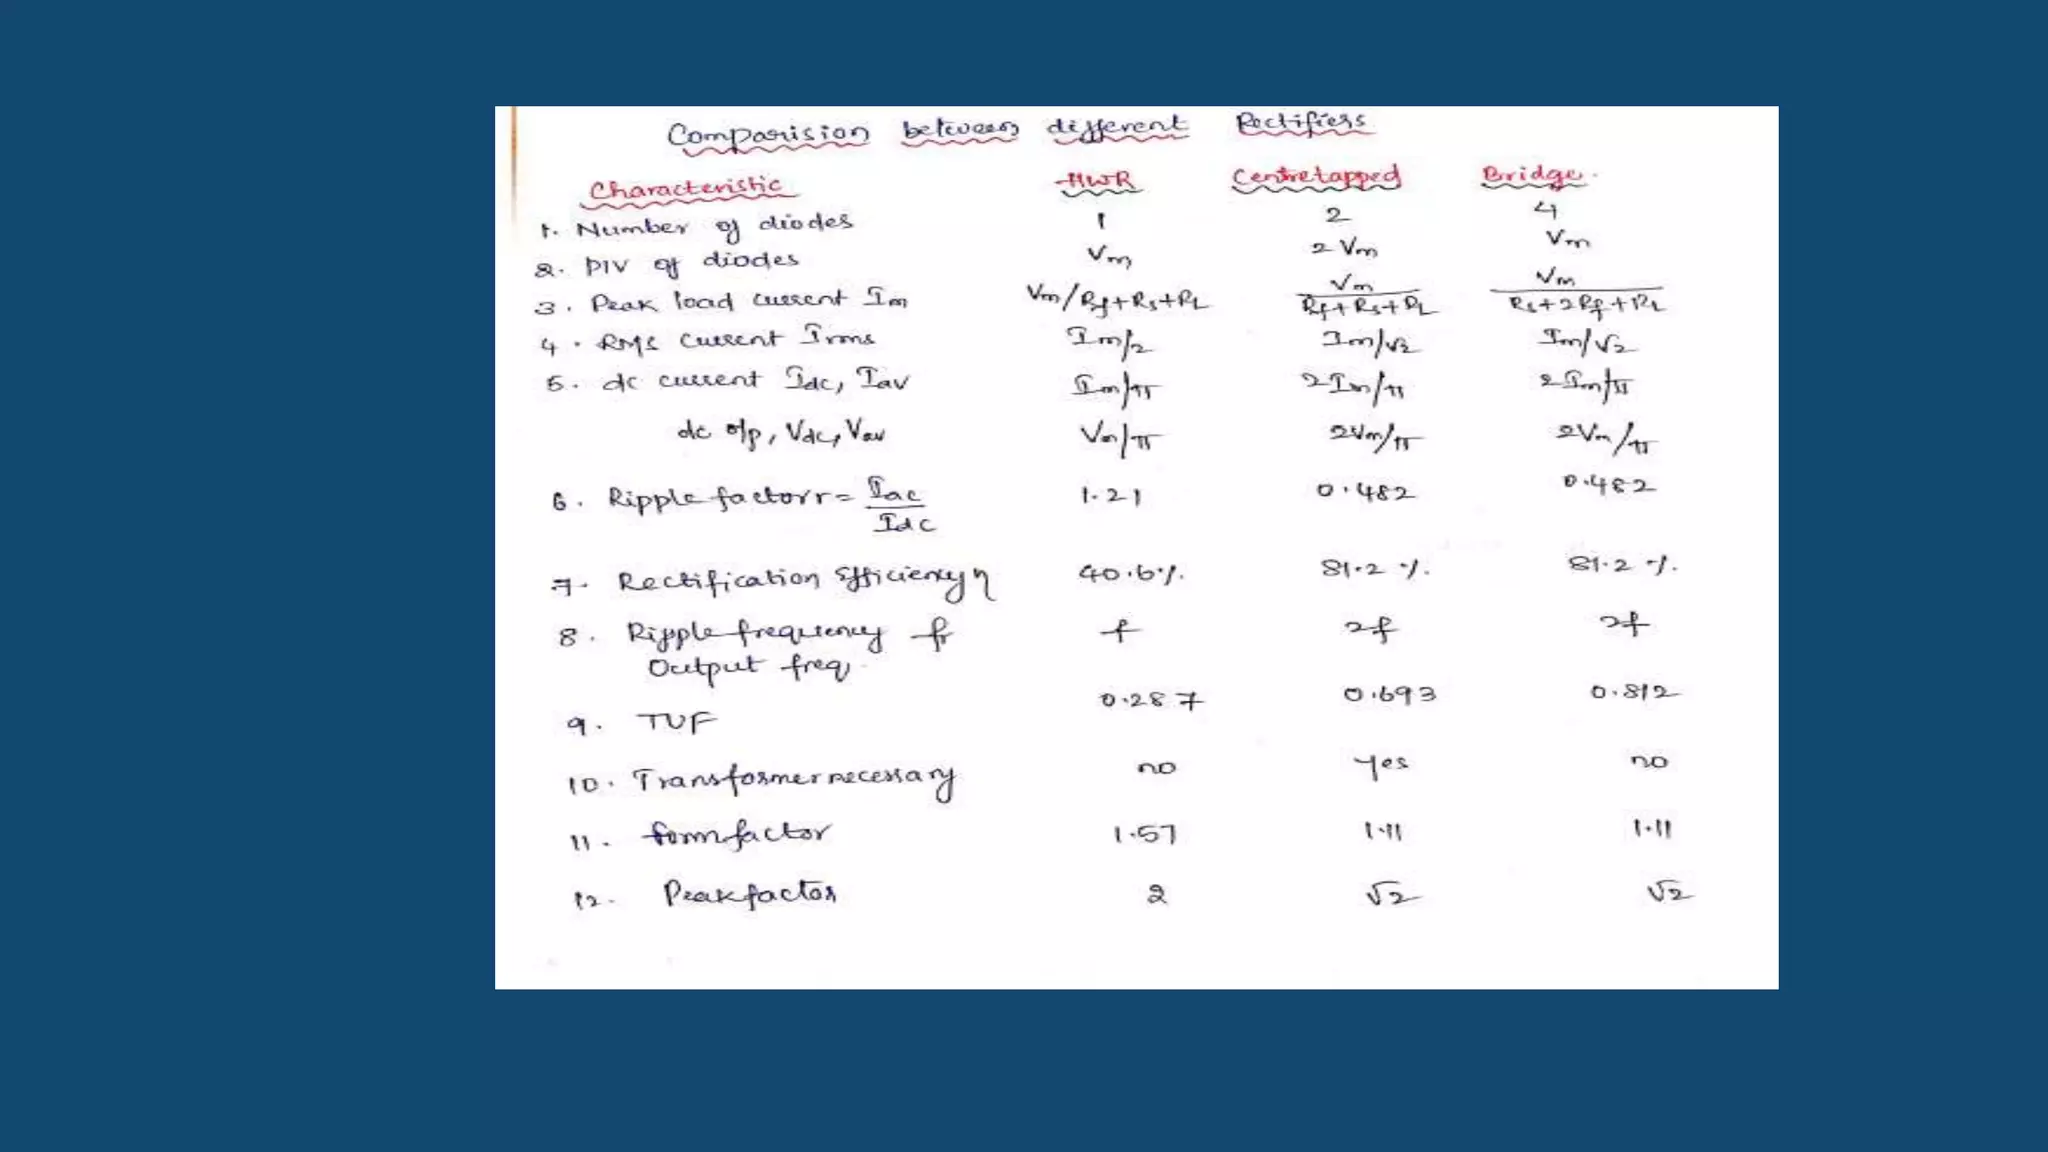 Comparision between different Rectifiers
Characteristic HWR Centretapped Bridge.
1. Number of diodes 1 2 4
2. PIV of diodes Vm 2Vm Vm
3. Peak load current Im Vm/Rf+Rs+RL Vm/Rf+Rs+RL Vm/Rs+2Rf+RL
4. RMS current Irms Im/2 Im/√2 Im/√2
5. dc current Idc, Iav Im/π 2Im/π 2Im/π
dc o/p, Vdc, Vav Vm/π 2Vm/π 2Vm/π
6. Ripple factor r = Iac/Idc 1.21 0.482 0.482
7. Rectification Efficiency η 40.6%. 81.2 %. 81.2 %.
8. Ripple frequency fr f 2f 2f
Output freq.
9. TUF 0.287 0.693 0.812
10. Transformer necessary no yes no
11. formfactor 1.57 1.11 1.11
12. Peakfactor 2 √2 √2